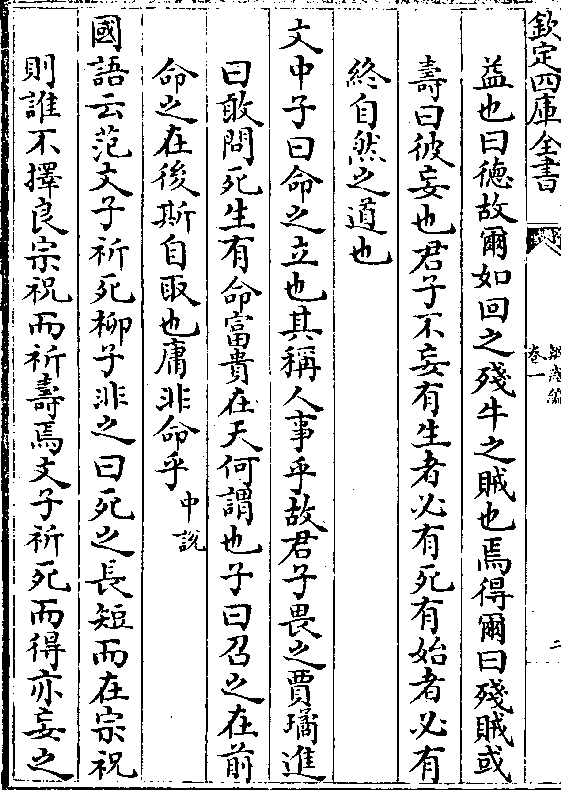 欽定四庫全書
卷一
二
益也曰德故爾如回之殘牛之賊也焉得爾曰殘賊或
壽曰彼妄也君子不妄有生者必有死有始者必有
終自然之道也
文中子曰命之立也其稱人事乎故君子畏之賈瓊進
曰敢問死生有命富貴在天何謂也子曰召之在前
命之在後斯自取也庸非命乎中說
國語云范文子祈死柳子非之曰死之長短而在宗祝
則誰不擇良宗祝而祈壽焉文子祈死而得亦妄之